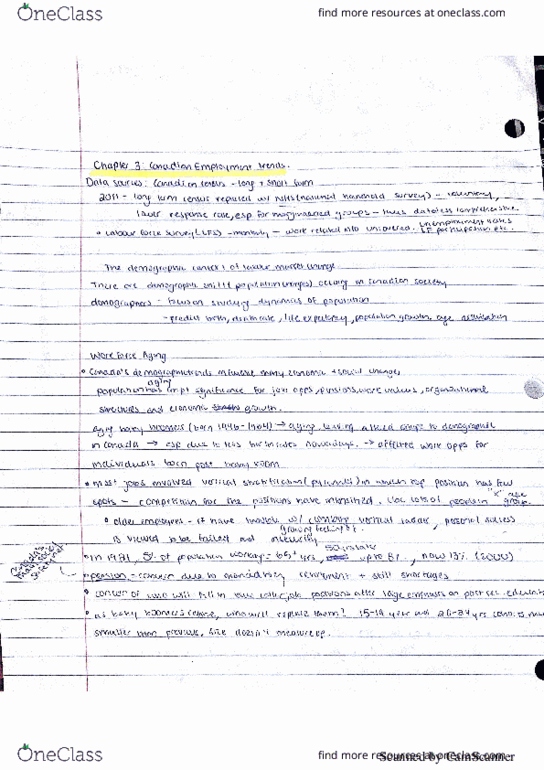 OneClass
find more resources at oneclass.com
Chapter 3: Canadian Employment trends.
Data sources: Canadian census - long + short form
2011 - long form census replaced w/ NHS (national household survey) - voluntary,
lower response rate, esp for marginalized groups - thus data less comprehensive
unemployment rates
• Labour force survey (LFS) - monthly - work related info uncovered.
The demographic context of labour market change
There are demographic shifts (population changes) occurring in Canadian society
demographers - focus on studying dynamics of population
- predict birth, death rate, life expectancy, population growth, age distribution
Workforce Aging
• Canada's demographic trends influence many economic + social change,
aging
population has significance for job opps, pensions, work values, organizational
structures and economic growth.
aging baby boomers (born 1946-1964) → aging, leaving a large to demographic
in Canada → esp due to less birth rates nowadays. → affected work opps for
individuals born post baby boom
• most jobs involved vertical stratification (pyramids) in which top position has few
spots - competition for the positions have intensified. b/c lots of people in "x" age group.
• older employees - if have trouble w/ vertical ladder, personal success
growing feelings of
is viewed to be failed and insecurity
• in 1971, 5% of population working = 65+ yrs, up to 8%, now 13% (2000)
• concern due to mandatory retirement + skill shortages
• concern of who will fill in these positions after large
• as baby boomers retire, who will replace them? 15-19 year and 20-24 yrs
smaller than previous, size doesn't measure up.
OneClass
find more resources at oneclass.com
Scanned by CamScanner